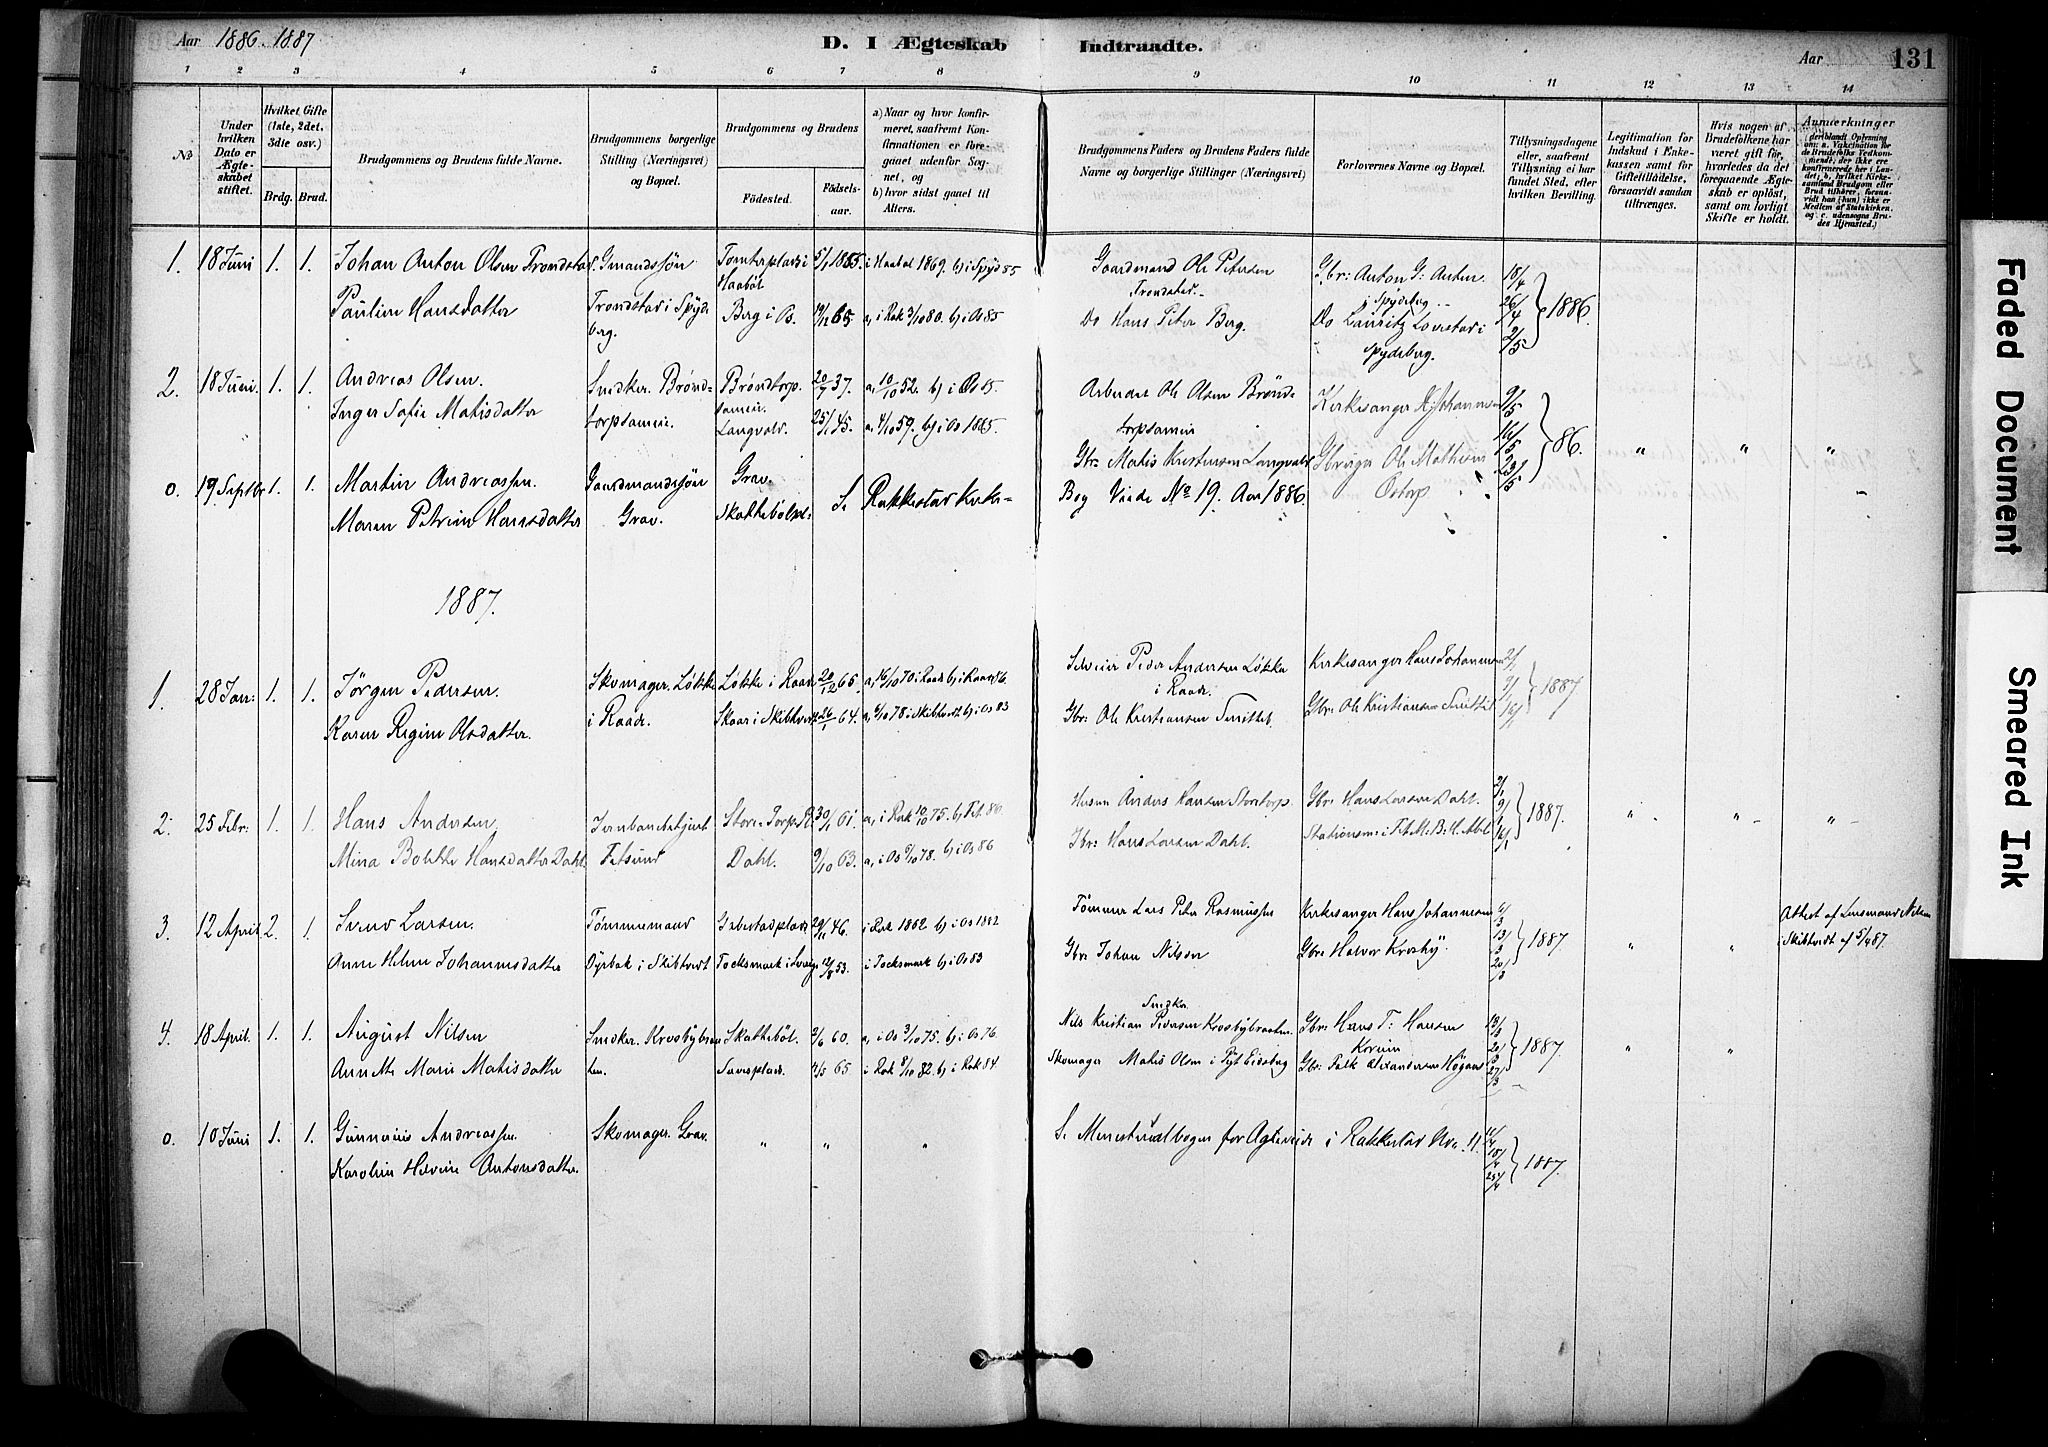 Aar 1886-1887
D. I Ægteskab Indtraadte.
Aar
131
1 2 3 4 5 6 7 8 9 10 11 12 13 14
No
Under hvilken Dato er Ægteskabet stiftet.
Hvilket Gifte (1ste, 2det, 3die osv.)
Brdg. Brud.
Brudgommens og Brudens fulde Navne.
Brudgommens borgerlige Stilling (Næringsvei) og Bopæl.
Brudgommens og Brudens
Födested.
Födselsaar.
a) Naar og hvor konfirmeret, saafremt Konfirmationen er foregaaet udenfor Sognet, og
b) hvor sidst gaaet til Alters.
Brudgommens Faders og Brudens Faders fulde Navne og borgerlige Stillinger (Næringsvei)
Forlovernes Navne og Bopæl.
Tillysningsdagene eller, saafremt Tillysning ei har fundet Sted, efter hvilken Bevilling.
Legitimation for Indskud i Enkekassen samt for Giftetilladelse, forsaavidt saadan tiltrænges.
Hvis nogen af Brudefolkene har været gift før, hvorledes da det foregaaende Ægteskab er opløst, samt om lovligt Skifte er holdt.
Anmerkninger
1. 18 Juni 1. 1. Johan Anton Olsen Trondstad. Gmandssøn Tomterplads i Haabøl 5/1 1855 i Haabøl 1869. b) i Spyd 85 Gaardmand Ole Petersen Trondstad. Gbr: Anton G: Anten i Spydeberg 18/4
Pauline Hansdatter Trondstad i Spydeberg. Berg i Os. 19/12 65 a, i Rak 3/10 80. b) i Os 85 Do Hans Peter Berg. Do Lauritz Lovestad i Spydeberg. 26/4 2/5 1886.
2. 18 Juni. 1. 1. Andreas Olsen. Snedker. Brøndtorpsameie. Brøndtorpsameie. 20/7 37. a, 10/10 52. b) i Os 85. Arbeider Ole Olsen Brøndtorpsameie Kirkesanger H Johannesen 9/5
Inger Sofie Matisdatter Langvold. 25/1 45. a, 4/10 59. b) i Os 1885. Gbr. Matis Kristensen Langvold Gbruger Ole Mathisen Østorp 16/5 23/5 86. " " "
0. 19 Septbr 1. 1. Martin Andreassen. Gaardmandssøn Grav. Grav. S. Rakkestad Kirke- Bog Viede No 19. Aar 1886.
Maren Petrine Hansdatter Skattebølpl:
1887.
1. 28 Jan: 1. 1. Jörgen Pedersen. Skomager. Løkke i Raade. Løkke i Raade 20/12 65. a, 16/10 70 i Raade b) i Raade 86. Selveier Peder Andersen Løkke i Raade. Kirkesanger Hans Johannesen 2/1
Karen Regine Olsdatter. Skaar i Skibtvedt 26/1 64. a, 6/10 78 i Skibtvedt b) i Os 83 Gbr: Ole Kristiansen Smittel. Gbr. Ole Kristiansen Smittel 9/1 16/1 1887.
2. 25 Febr: 1. 1. Hans Andersen Jernbanebetjent Fetsund Store-Torp R. 30/1 61. a, i Rak 10/10 75. b) Fet. 86. Husm Anders Hansen Storetorp. Gbr. Hans Larsen Dahl. 2/1
Mina Bolette Hansdatter Dahl. Dahl. 9/10 63. a, i Os 6/10 78. b) i Os 86 Gbr. Hans Larsen Dahl. 9/1 16/1 1887. " " "
3. 12 April 2. 1. Svend Larsen. Tømmermand Grabestadplads 29/11 46. i Rak 1862 b) i Os 1882 Tömmer Lars Peter Rasmussen Kirkesanger Hans Johannesen 6/3 Attest af Lensmand Nilsen
Anne Helene Johannesdatter Dyrbak i Skibtvedt Tocksmark i Sverige 12/8 53. i Tocksmark b) i Os 83 Gbr. Johan Nilsen Gbr. Halvor Krosby 13/3 20/3 1887. " " i Skibtvedt af 5/4 87.
4. 18 April. 1. 1. August Nilsen Snedker. Krosbybraaten. Skattebøl. 2/6 60. a, i Os 3/10 75. b) i Os 76. Snedker Nils Kristian Pedersen Krosbybraaten. Gbr: Hans T: Hansen 13/3
Annette Marie Matisdatter 4/5 65 i Rak 8/10 82. b) i Rak 84. Skomager Matis Olsen i Eidsberg Gbr: Falk Alexandersen 20/3 27/3 1887. " "
0. 10 Juni 1. 1. Gunnerius Andreassen. Skomager. Grav. " " " S. Ministerialbogen for Ægteviede i Rakkestad No 11. 11/4
Karoline Helvine Antonsdatter. 18/4 25/4 1887.
Faded Document
Smeared Ink